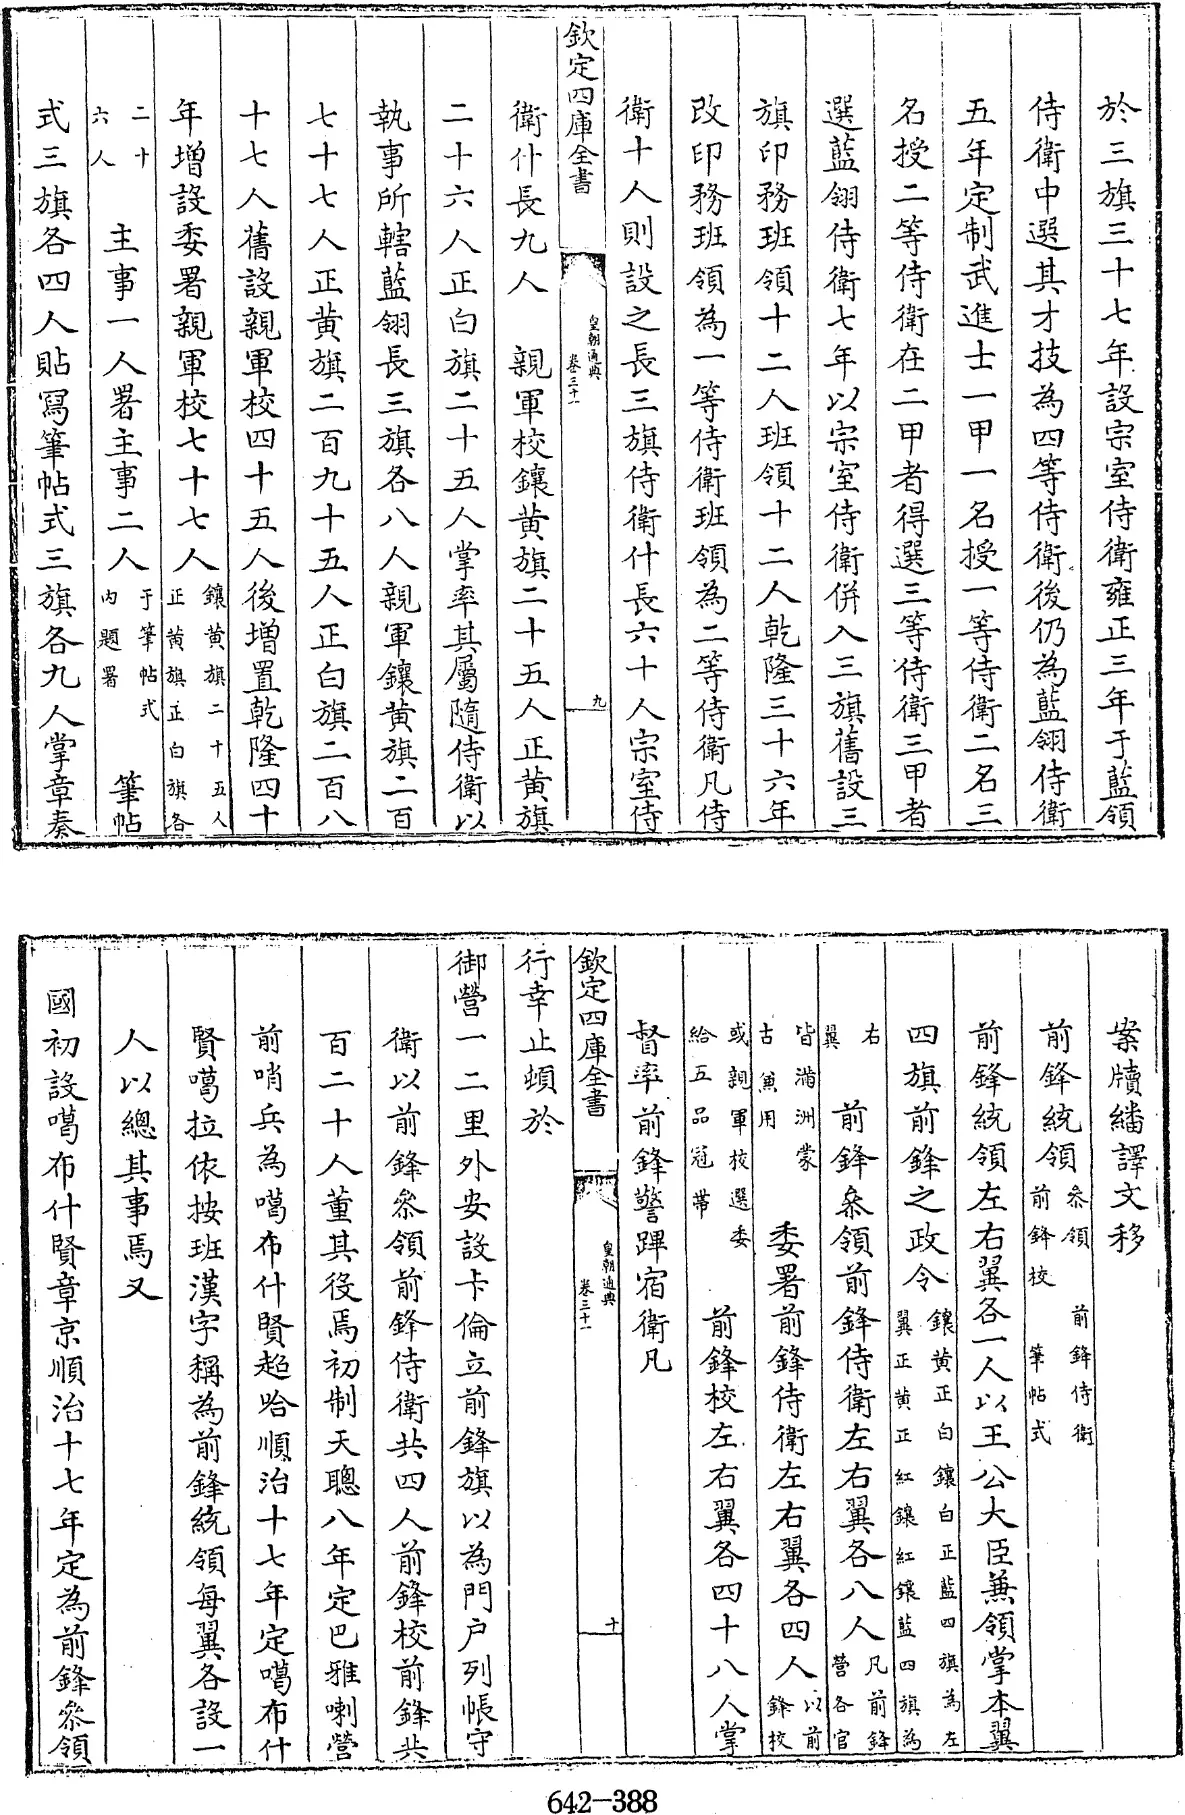 於三旗三十七年設宗室侍衛雍正三年于藍領
侍衛中選其才技為四等侍衛後仍為藍翎侍衛
五年定制武進士一甲一名授一等侍衛二名三
名授二等侍衛在二甲者得選三等侍衛三甲者
選藍翎侍衛七年以宗室侍衛併入三旗舊設三
旗印務班領十二人班領十二人乾隆三十六年
改印務班領為一等侍衛班領為二等侍衛凡侍
衛十人則設之長三旗侍衛什長六十人宗室侍
欽定四庫全書
皇朝通典
卷三十一
九
衛什長九人　親軍校鑲黄旗二十五人正黄旗
二十六人正白旗二十五人掌率其屬隨侍衛以
執事所轄藍翎長三旗各八人親軍鑲黄旗二百
七十七人正黄旗二百九十五人正白旗二百八
十七人舊設親軍校四十五人後増置乾隆四十
年增設委署親軍校七十七人鑲黄旗二十五人正黄旗正白旗各
二十六人　主事一人署主事二人于筆帖式内題署　筆帖
式三旗各四人貼寫筆帖式三旗各九人掌章奏
案牘繙譯文移
前鋒統領參領　前鋒侍衛前鋒校　筆帖式
前鋒統領左右翼各一人以王公大臣兼領掌本翼
四旗前鋒之政令鑲黄正白鑲白正藍四旗為左翼正黄正紅鑲紅鑲藍四旗為
右翼　前鋒叅領前鋒侍衛左右翼各八人凡前鋒營各官
皆滿洲蒙古兼用　委署前鋒侍衛左右翼各四人以前鋒校
或親軍校選委給五品冠帶　前鋒校左右翼各四十八人掌
督率前鋒警蹕宿衛凡
欽定四庫全書
皇朝通典
卷三十一
十
行幸止頓於
御營一二里外安設卡倫立前鋒旗以為門户列帳守
衛以前鋒叅領前鋒侍衛共四人前鋒校前鋒共
百二十人董其役焉初制天聰八年定巴雅喇營
前哨兵為噶布什賢超哈順治十七年定噶布什
賢噶拉依按班漢字稱為前鋒統領每翼各設一
人以總其事焉又
國初設噶布什賢章京順治十七年定為前鋒叅領
642-388